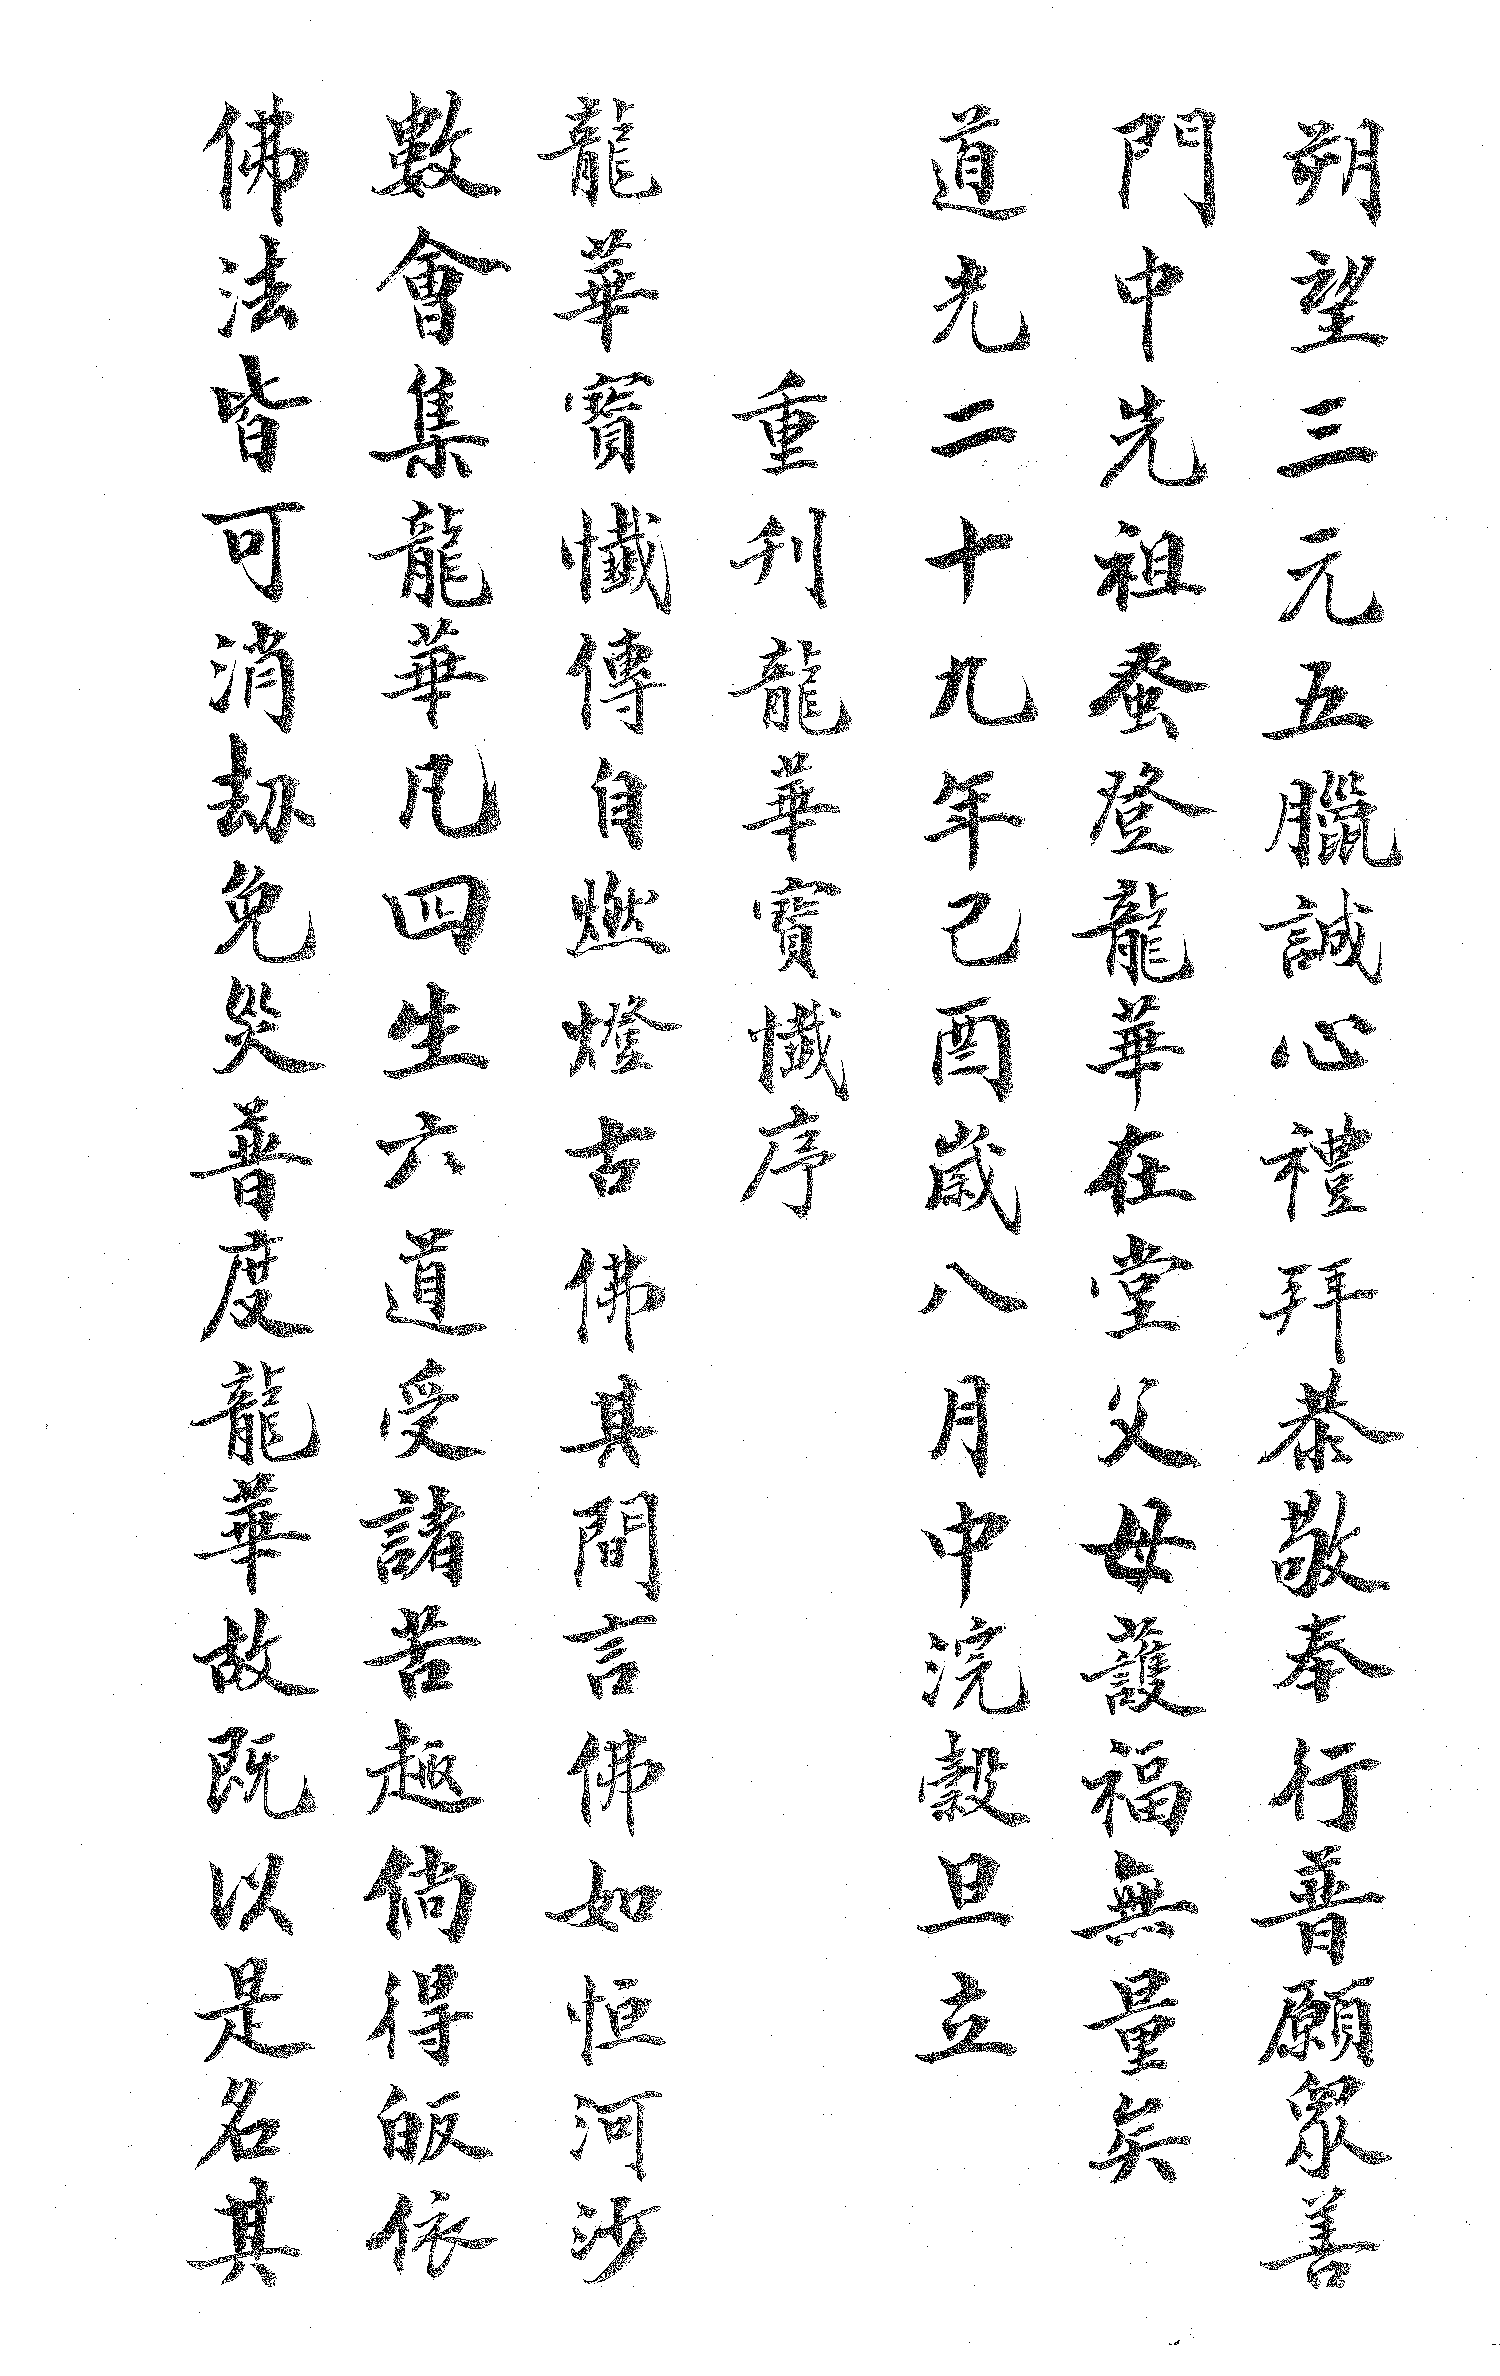 朔望三元五臘誠心禮拜恭敬奉行普願眾善
門中先祖蚤登龍華在堂父母護福無量矣
道光二十九年己酉歲八月中浣穀旦立
重刊龍華寶懺序
龍華寶懺傳自燃燈古佛其間言佛如恒河沙
數會集龍華凡四生六道受諸苦趣倘得皈依
佛法皆可消劫免災普度龍華故既以是名其